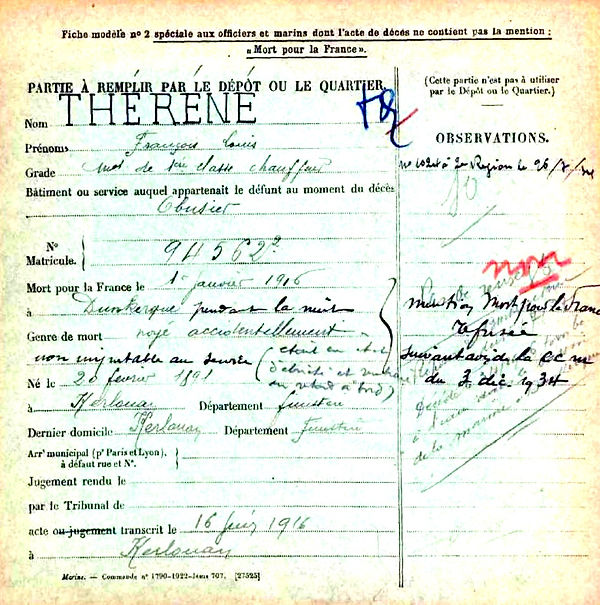 Fiche modèle nº 2 spéciale aux officiers et marins dont l'acte de décès ne contient pas la mention :
« Mort pour la France ».
PARTIE À REMPLIR PAR LE DÉPÔT OU LE QUARTIER
(Cette partie n'est pas à utiliser
par le Dépôt ou le Quartier.)
Nom THÉRÉNÉ
Prénoms François Louis
OBSERVATIONS.
Grade Mot de 1ère classe chauffeur
Bâtiment ou service auquel appartenait le défunt au moment du décès
Obusier
Nº
Matricule. 94562²
non
Mort pour la France le 1er janvier 1916
à Dunkerque pendant la nuit
mention Mort pour la France
Genre de mort noyé accidentellement
refusée
non imputable au service (était en état
d'ébriété et
en retard à bord)
suivant avis de la
du 3 déc. 1934
Né le 20 février 1891
à Kerlouan Département finistère
Dernier domicile Kerlouan Département Finistère
de la marine
Arrt municipal (pr Paris et Lyon),
à défaut rue et Nº.
Jugement rendu le
par le Tribunal de
acte ou jugement transcrit le 16 juin 1916
à Kerlouan
Marine. — Commande nº 1790-1922-Jésus 707. [27525]